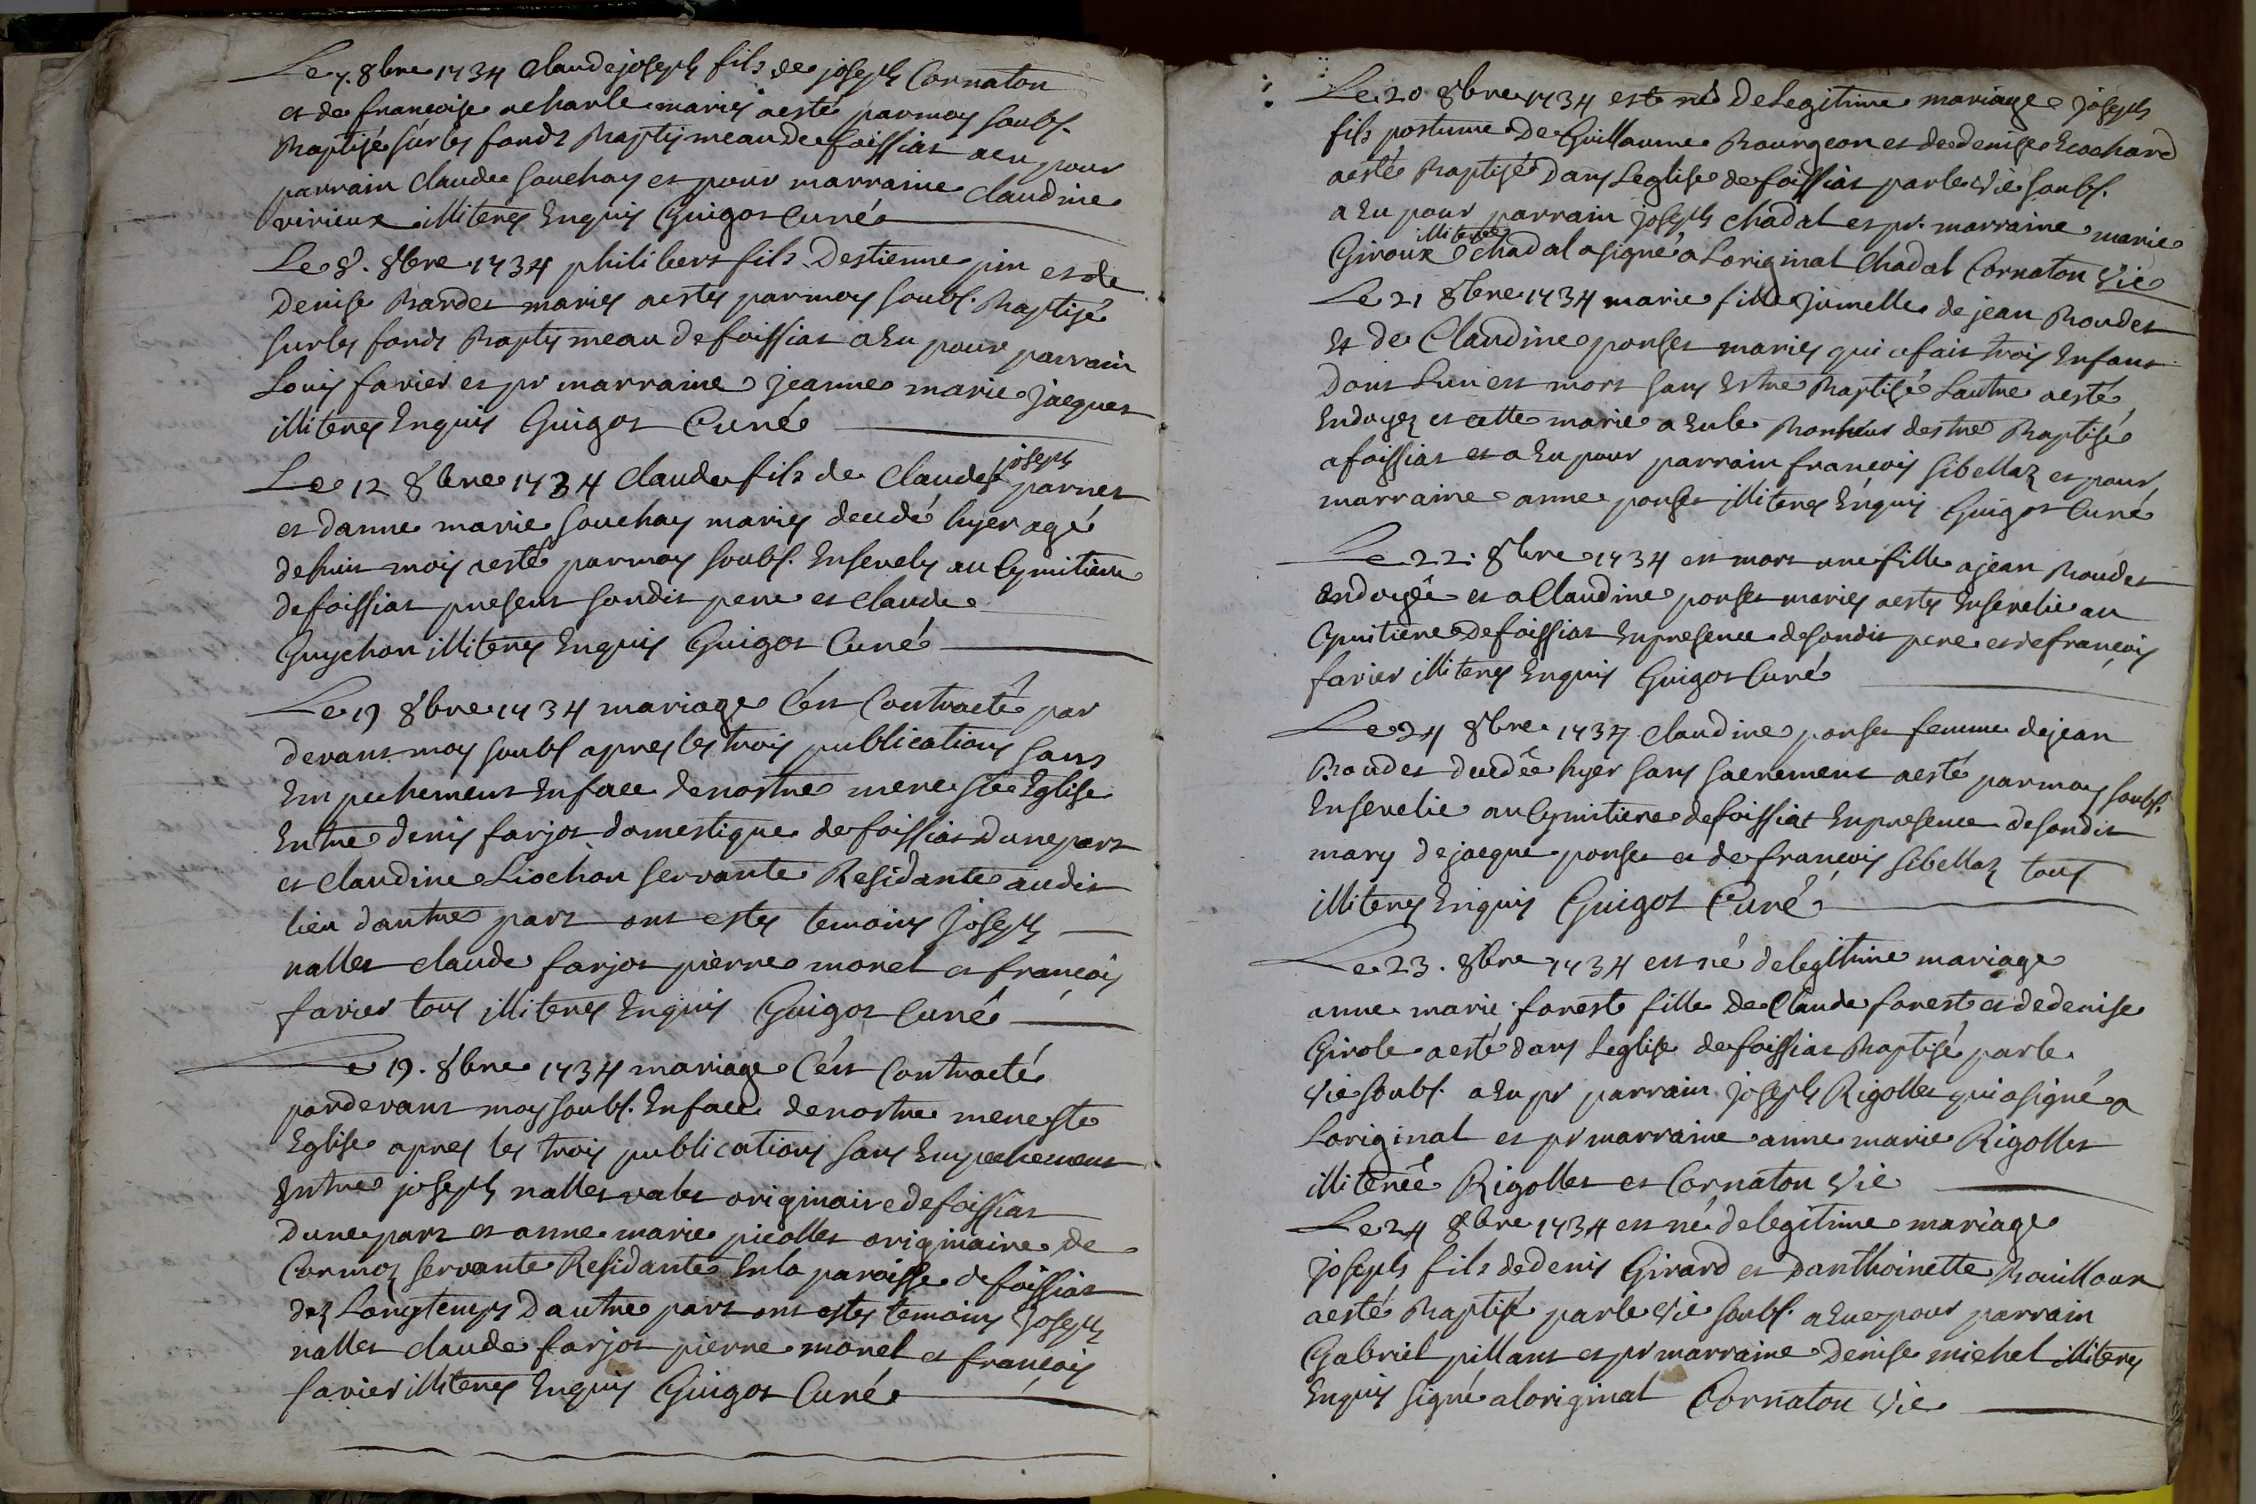 Le 7. 8bre 1734 Claude joseph fils de joseph Cornaton
et de francoise acharle mariés aesté parmoy soubs.
Baptisé sur les fonds Baptismeau de foissiat aeu pour
parrain Claude souchay et pour marraine Claudine
virieux illiterés Enquis Guigot Curé
Le 8. 8bre 1734 philibert fils Destienne pin et de
Denise Bardet mariés aestés parmoy soubs. Baptisé
sur les fonds Baptismeau de foissiat a Eu pour parrain
Louis favier et pr marraine jeanne marie jacquet
illiterés Enquis Guigot Curé
joseph
Le 12 8bre 1734 Claude fils de Claude parnet
et danne marie souchay mariés decedé hyer agé
de huit mois aesté parmoy soubs. Ensevely au Cymitiere
de foissiat present sondit pere et claude
Guychon illiterés Enquis Guigot Curé
Le 19 8bre 1734 mariage C'est Contracté par
devant moy soubs apres les trois publications sans
Empechement Enface denostre mere ste Eglise
Entre denis farjot domestique de foissiat dunepart
et Claudine Liochon servante Residante audit
lieu dautre part ont estés temoins joseph
nallet claude farjot pierre morel et françois
favier tous illiterés Enquis Guigot Curé
Le 19. 8bre 1734 mariage C'est Contracté
pardevant moy soubs. Enface denostre mere ste
Eglise apres les trois publications sans Empechement
Entre joseph nallet valet originaire de foissiat
dune part et anne marie picollet originaire de
Cormoz servante Residante En la paroisse de foissiat
dez Longtemps Dautre part ont estés temoins Joseph
nallet claude farjot pierre morel et françois
favier illiterés Enquis Guigot Curé
Le 20 8bre 1734 est né De Legitime mariage joseph
fils postume De Guillaume Bourgeon et de denise Ecochard
aesté Baptisé Dans Leglise de foissiat par le vic soubs.
a Eu pour parrain joseph Chadal et pr. marraine marie
illiterée
Giroux Chadal a signé a Loriginal Chadal Cornaton Vic
Le 21 8bre 1734 marie fille jumelle de jean Boudet
Et de Claudine ponset mariés qui a fait trois Enfant
Dont Lun est mort sans Estre Baptisé Lautre aesté
Endoyez et cette marie a Eu le Bonheur destre Baptisé
a foissiat et a Eu pour parrain francois sibellaz et pour
marraine anne ponset illiterés Enquis Guigot Curé
Le 22. 8bre 1734 est mort une fille a jean Boudet
Endoyée et a Claudine ponset mariés aestés Ensevelie au
Cymitiere de foissiat Enpresence de sondit pere et de françois
favier illiterés Enquis Guigot Curé
Le 24 8bre 1734 Claudine ponset femme de jean
Boudet decedée hyer sans sacrement aesté par moy soubs.
Ensevelie au Cymitiere de foissiat Enpresence de sondit
mary de jacque ponset et de francois sibellaz tous
illiterés Enquis Guigot Curé
Le 23. 8bre 1734 est né de legitime mariage
anne marie forest fille de Claude forest et de denise
Girole aesté dans Leglise de foissiat Baptisé par le
Vic soubs. a Eu pr parrain joseph Rigollet qui a signé a
Loriginal et pr marraine anne marie Rigollet
illiterée Rigollet et Cornaton Vic
Le 24 8bre 1734 est né de legitime mariage
joseph fils de denis Girard et Danthoinette Bouilloux
aesté Baptisé par le Vic soubs. a Eu pour parrain
Gabriel pillant et pr marraine Denise michel illiterés
Enquis signé a loriginal Cornaton Vic